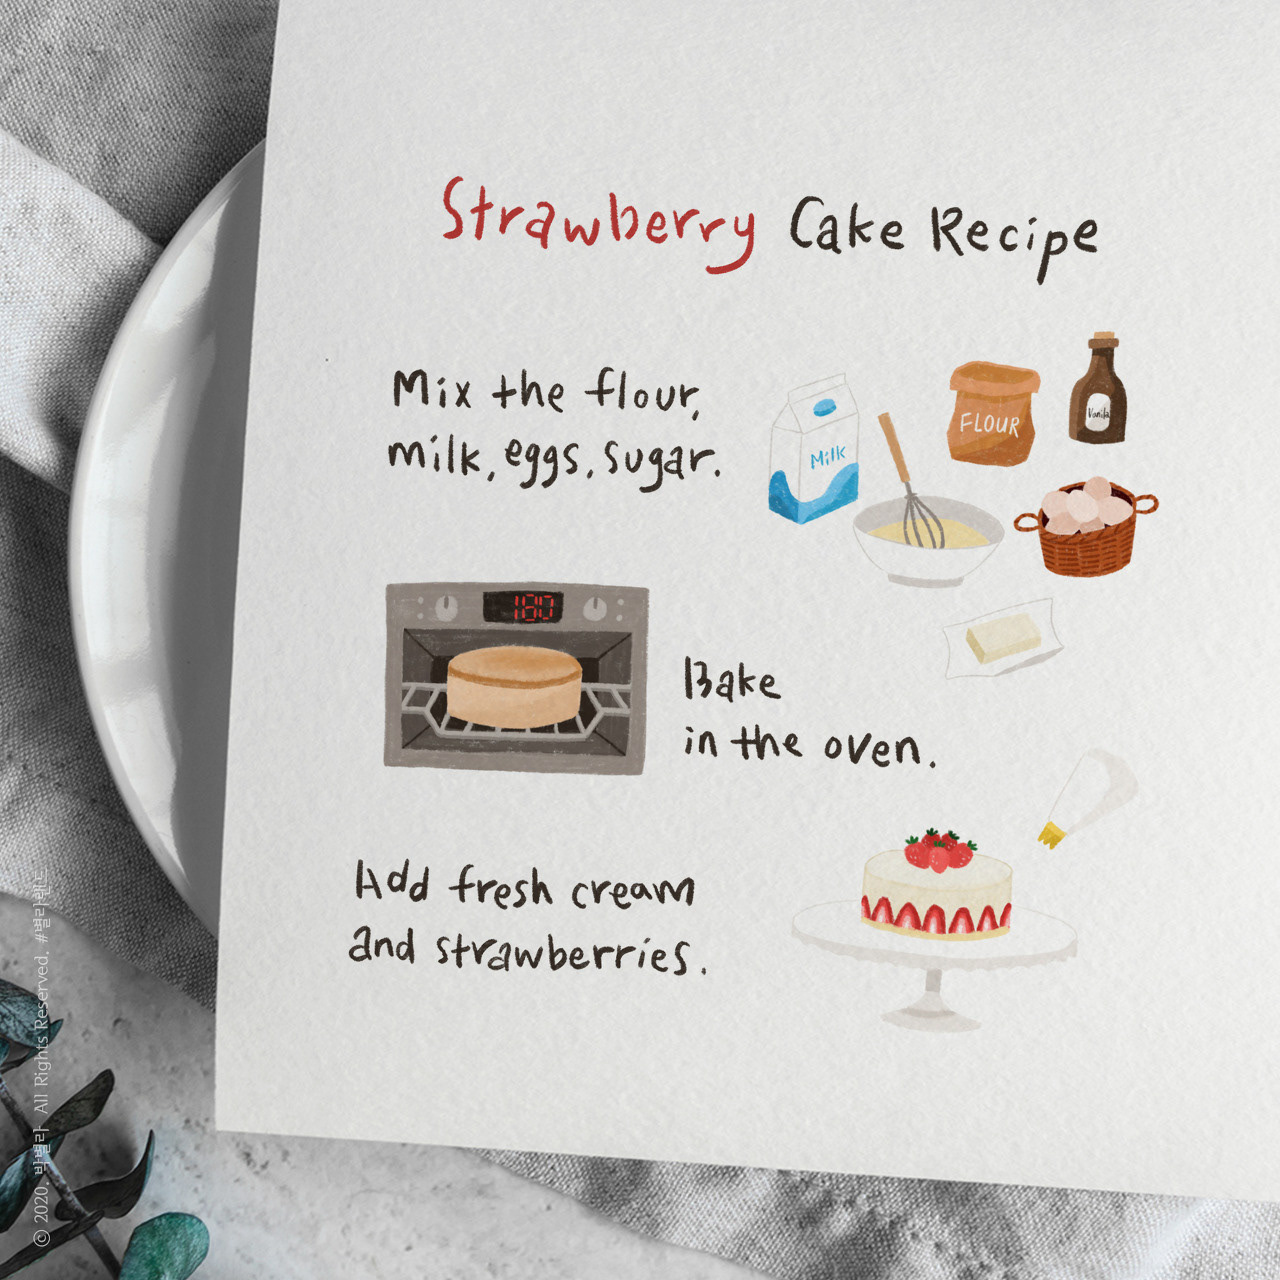 Strawberry Cake Recipe
Mix the flour,
milk, eggs, sugar.
Milk
FLOUR
Vanilla
180
Bake
in the oven.
Add fresh cream
and strawberries.
© 2020. 박벌라 All Rights Reserved. #벌라랜드